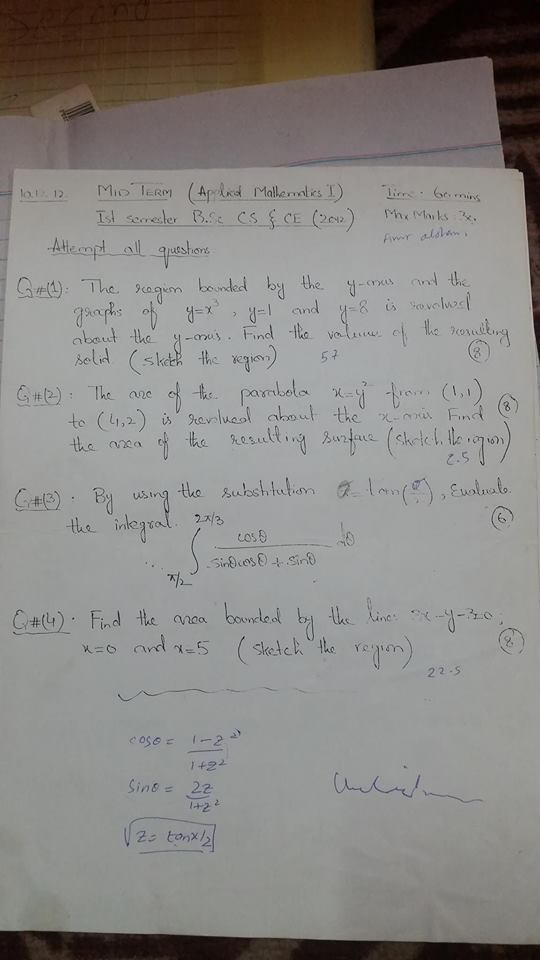 10.12.12. MID TERM (Applied Mathematics I) Time: 60 mins
Ist semester B.Sc CS & CE (2012) Max Marks: 30.
Attempt all questions.
Q#(1): The region bounded by the y-axis and the
graphs of y=x³, y=1 and y=8 is revolved
about the y-axis. Find the volume of the resulting
solid. (Sketch the region) 57 (8)
Q#(2): The arc of the parabola x=y² from (1,1)
to (4,2) is revolved about the x-axis. Find (8)
the area of the resulting surface (Sketch the region)
2.5
Q#(3). By using the substitution = tan( ), Evaluate
the integral. (6)
∫ π/2 2π/3 cosθ / sinθcosθ + sinθ dθ
Q#(4). Find the area bounded by the line: 3x-y-3=0,
x=0 and x=5 (Sketch the region) (8)
22.5
cosθ = 1-z² / 1+z²
sinθ = 2z / 1+z²
z = tanx/2